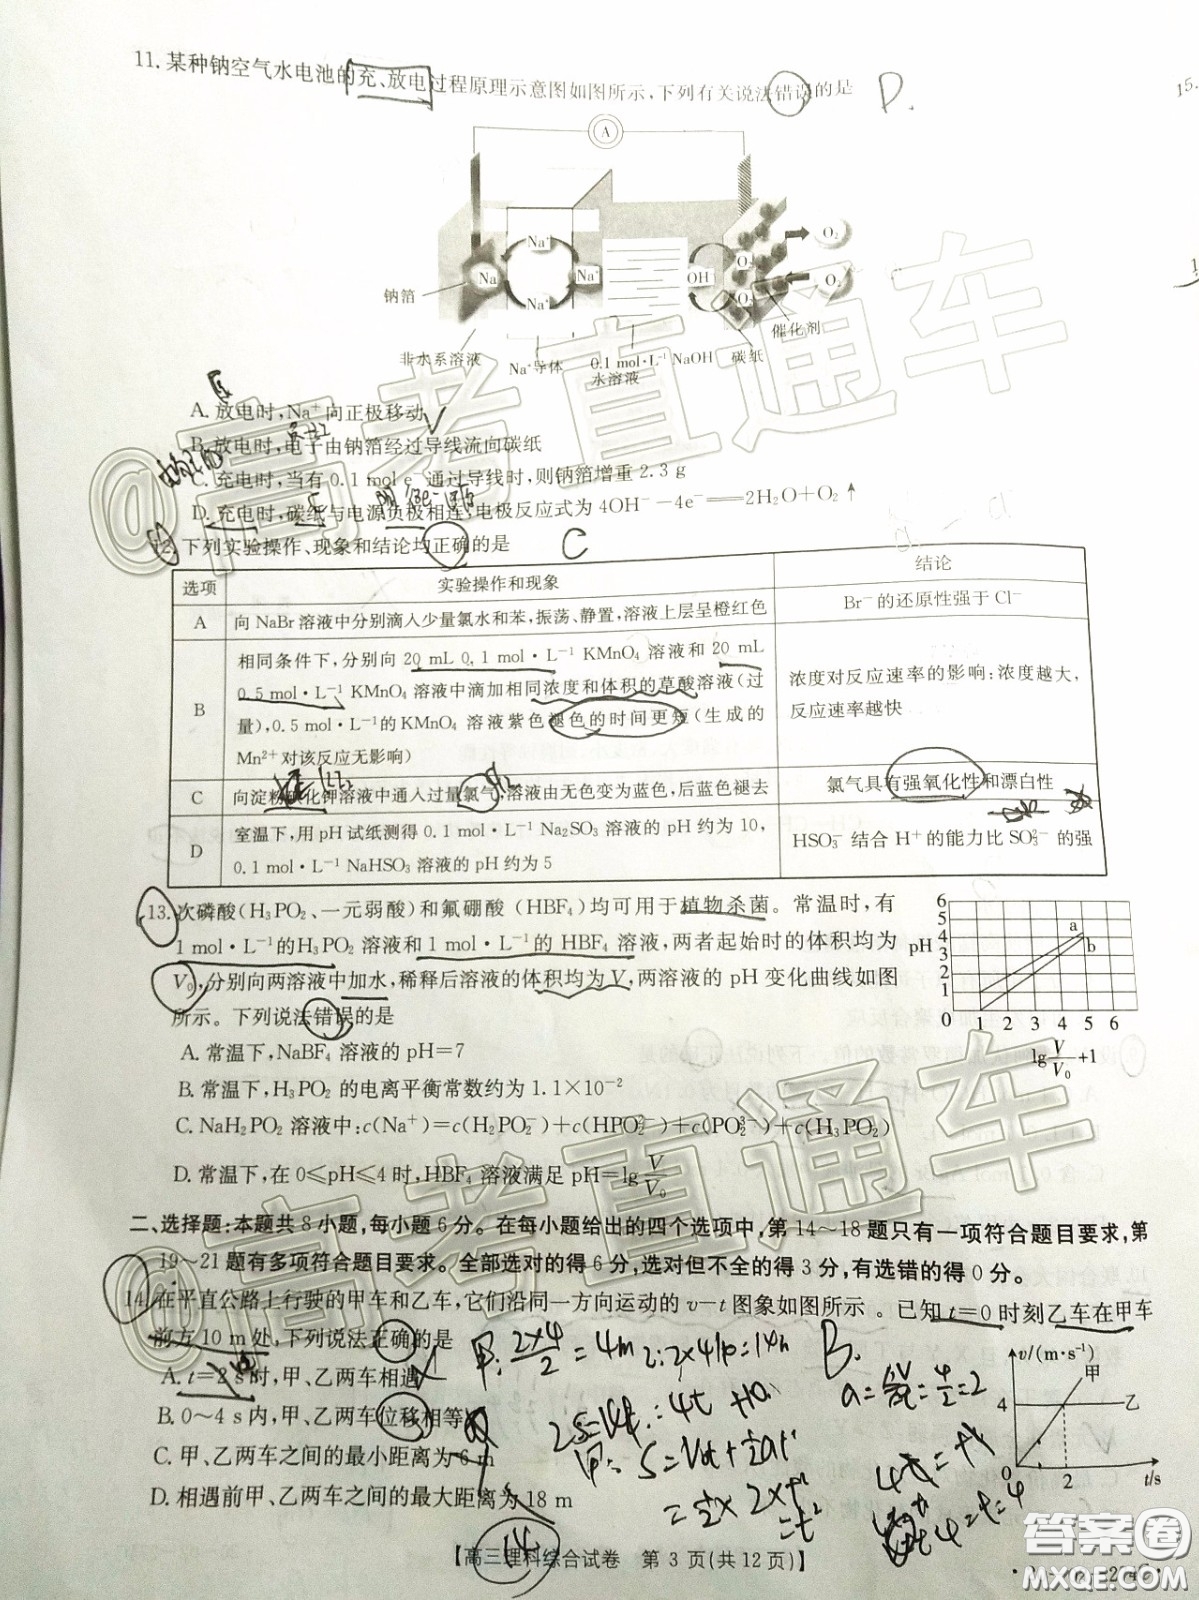 11.某种钠空气水电池的充、放电过程原理示意图如图所示,下列有关说法错误的是
D.
15.
A
Na⁺
O₂
Na
Na⁺
OH⁻
O₂
钠箔
Na⁺
O₂
O₂
催化剂
非水系溶液
Na⁺导体
0.1 mol·L⁻¹ NaOH
水溶液
碳纸
A.放电时,Na⁺向正极移动
B.放电时,电子由钠箔经过导线流向碳纸
C.充电时,当有0.1 mol e⁻通过导线时,则钠箔增重2.3 g
D.充电时,碳纸与电源负极相连,电极反应式为4OH⁻-4e⁻══2H₂O+O₂↑
12.下列实验操作、现象和结论均正确的是
C
选项
实验操作和现象
结论
A
向NaBr溶液中分别滴入少量氯水和苯,振荡、静置,溶液上层呈橙红色
Br⁻的还原性强于Cl⁻
B
相同条件下,分别向20 mL 0.1 mol·L⁻¹ KMnO₄溶液和20 mL
0.5 mol·L⁻¹ KMnO₄溶液中滴加相同浓度和体积的草酸溶液(过
量),0.5 mol·L⁻¹的KMnO₄溶液紫色褪色的时间更短(生成的
Mn²⁺对该反应无影响)
浓度对反应速率的影响:浓度越大,
反应速率越快
C
向淀粉碘化钾溶液中通入过量氯气,溶液由无色变为蓝色,后蓝色褪去
氯气具有强氧化性和漂白性
D
室温下,用pH试纸测得0.1 mol·L⁻¹ Na₂SO₃溶液的pH约为10,
0.1 mol·L⁻¹ NaHSO₃溶液的pH约为5
HSO₃⁻结合H⁺的能力比SO₃²⁻的强
13.次磷酸(H₃PO₂、一元弱酸)和氟硼酸(HBF₄)均可用于植物杀菌。常温时,有
1 mol·L⁻¹的H₃PO₂溶液和1 mol·L⁻¹的HBF₄溶液,两者起始时的体积均为
V₀,分别向两溶液中加水,稀释后溶液的体积均为V,两溶液的pH变化曲线如图
所示。下列说法错误的是
6
5
4
pH 3
2
1
0 1 2 3 4 5 6
a
b
lg V/V₀ +1
A.常温下,NaBF₄溶液的pH=7
B.常温下,H₃PO₂的电离平衡常数约为1.1×10⁻²
C.NaH₂PO₂溶液中:c(Na⁺)=c(H₂PO₂⁻)+c(HPO₂²⁻)+c(PO₂³⁻)+c(H₃PO₂)
D.常温下,在0≤pH≤4时,HBF₄溶液满足pH=lg V/V₀
二、选择题:本题共8小题,每小题6分。在每小题给出的四个选项中,第14~18题只有一项符合题目要求,第
19~21题有多项符合题目要求。全部选对的得6分,选对但不全的得3分,有选错的得0分。
14.在平直公路上行驶的甲车和乙车,它们沿同一方向运动的v-t图象如图所示。已知t=0时刻乙车在甲车
前方10 m处,下列说法正确的是
B.
A.t=2 s时,甲、乙两车相遇
B.0~4 s内,甲、乙两车位移相等
C.甲、乙两车之间的最小距离为6 m
D.相遇前甲、乙两车之间的最大距离为18 m
v/(m·s⁻¹)
甲
4
乙
0
2
t/s
【高三理科综合试卷 第3页(共12页)】
@高考直通车
@高考直通车
@高考直通车
答案圈
MXQE.COM